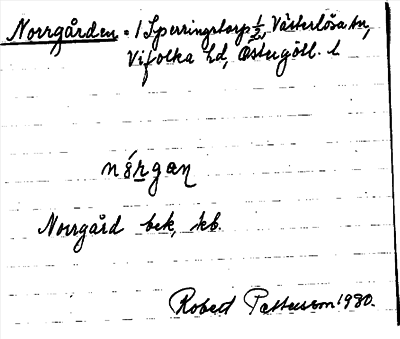 Norrgården = 1 Sperringstorp 1/2, Västerlösa sn,
Vifolka hd, Östergötl. l
Norrgård bek, kb.
Robert Pettersson 1980.